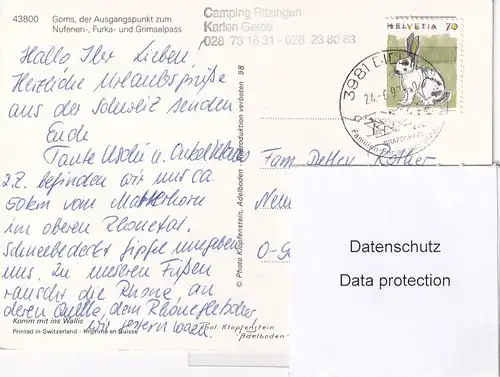 43800 Goms, der Ausgangspunkt zum
Nufenen-, Furka- und Grimselpass
Camping Ritzingen
Karlen Gerda
028 73 16 31 - 028 23 80 63
HELVETIA 70
3981
Familien-Ferien
Hallo Ihr Lieben,
Herzliche Urlaubsgrüße
aus der Schweiz senden
Euch
Tante Uschi u. Onkel Klaus
z.Z. befinden wir uns ca
50km vom Matterhorn
im oberen Rhonetal.
Schneebedeckte Gipfel umgeben
uns. Zu unseren Füßen
rauscht die Rhone, an
deren Quelle, dem Rhonegletscher,
wir gestern waren.
Komm mit ins Wallis
Printed in Switzerland - Imprimé en Suisse
Phot. Klopfenstein
Adelboden
© Photo Klopfenstein, Adelboden Reproduktion verboten 98
Fam Detlev
O-
Datenschutz
Data protection